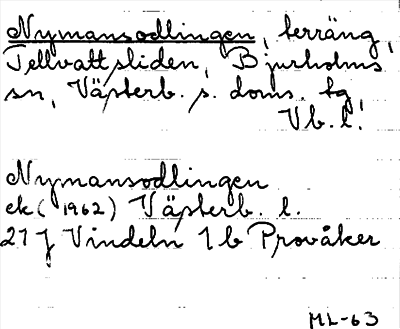 Nymansodlingen, terräng,
Tellvattsliden, Bjurholms
sn, Västerb. s. doms. tg,
Vb. l.
Nymansodlingen
ek (1962) Västerb. l.
21 J Vindeln 1 b Provåker
ML-63